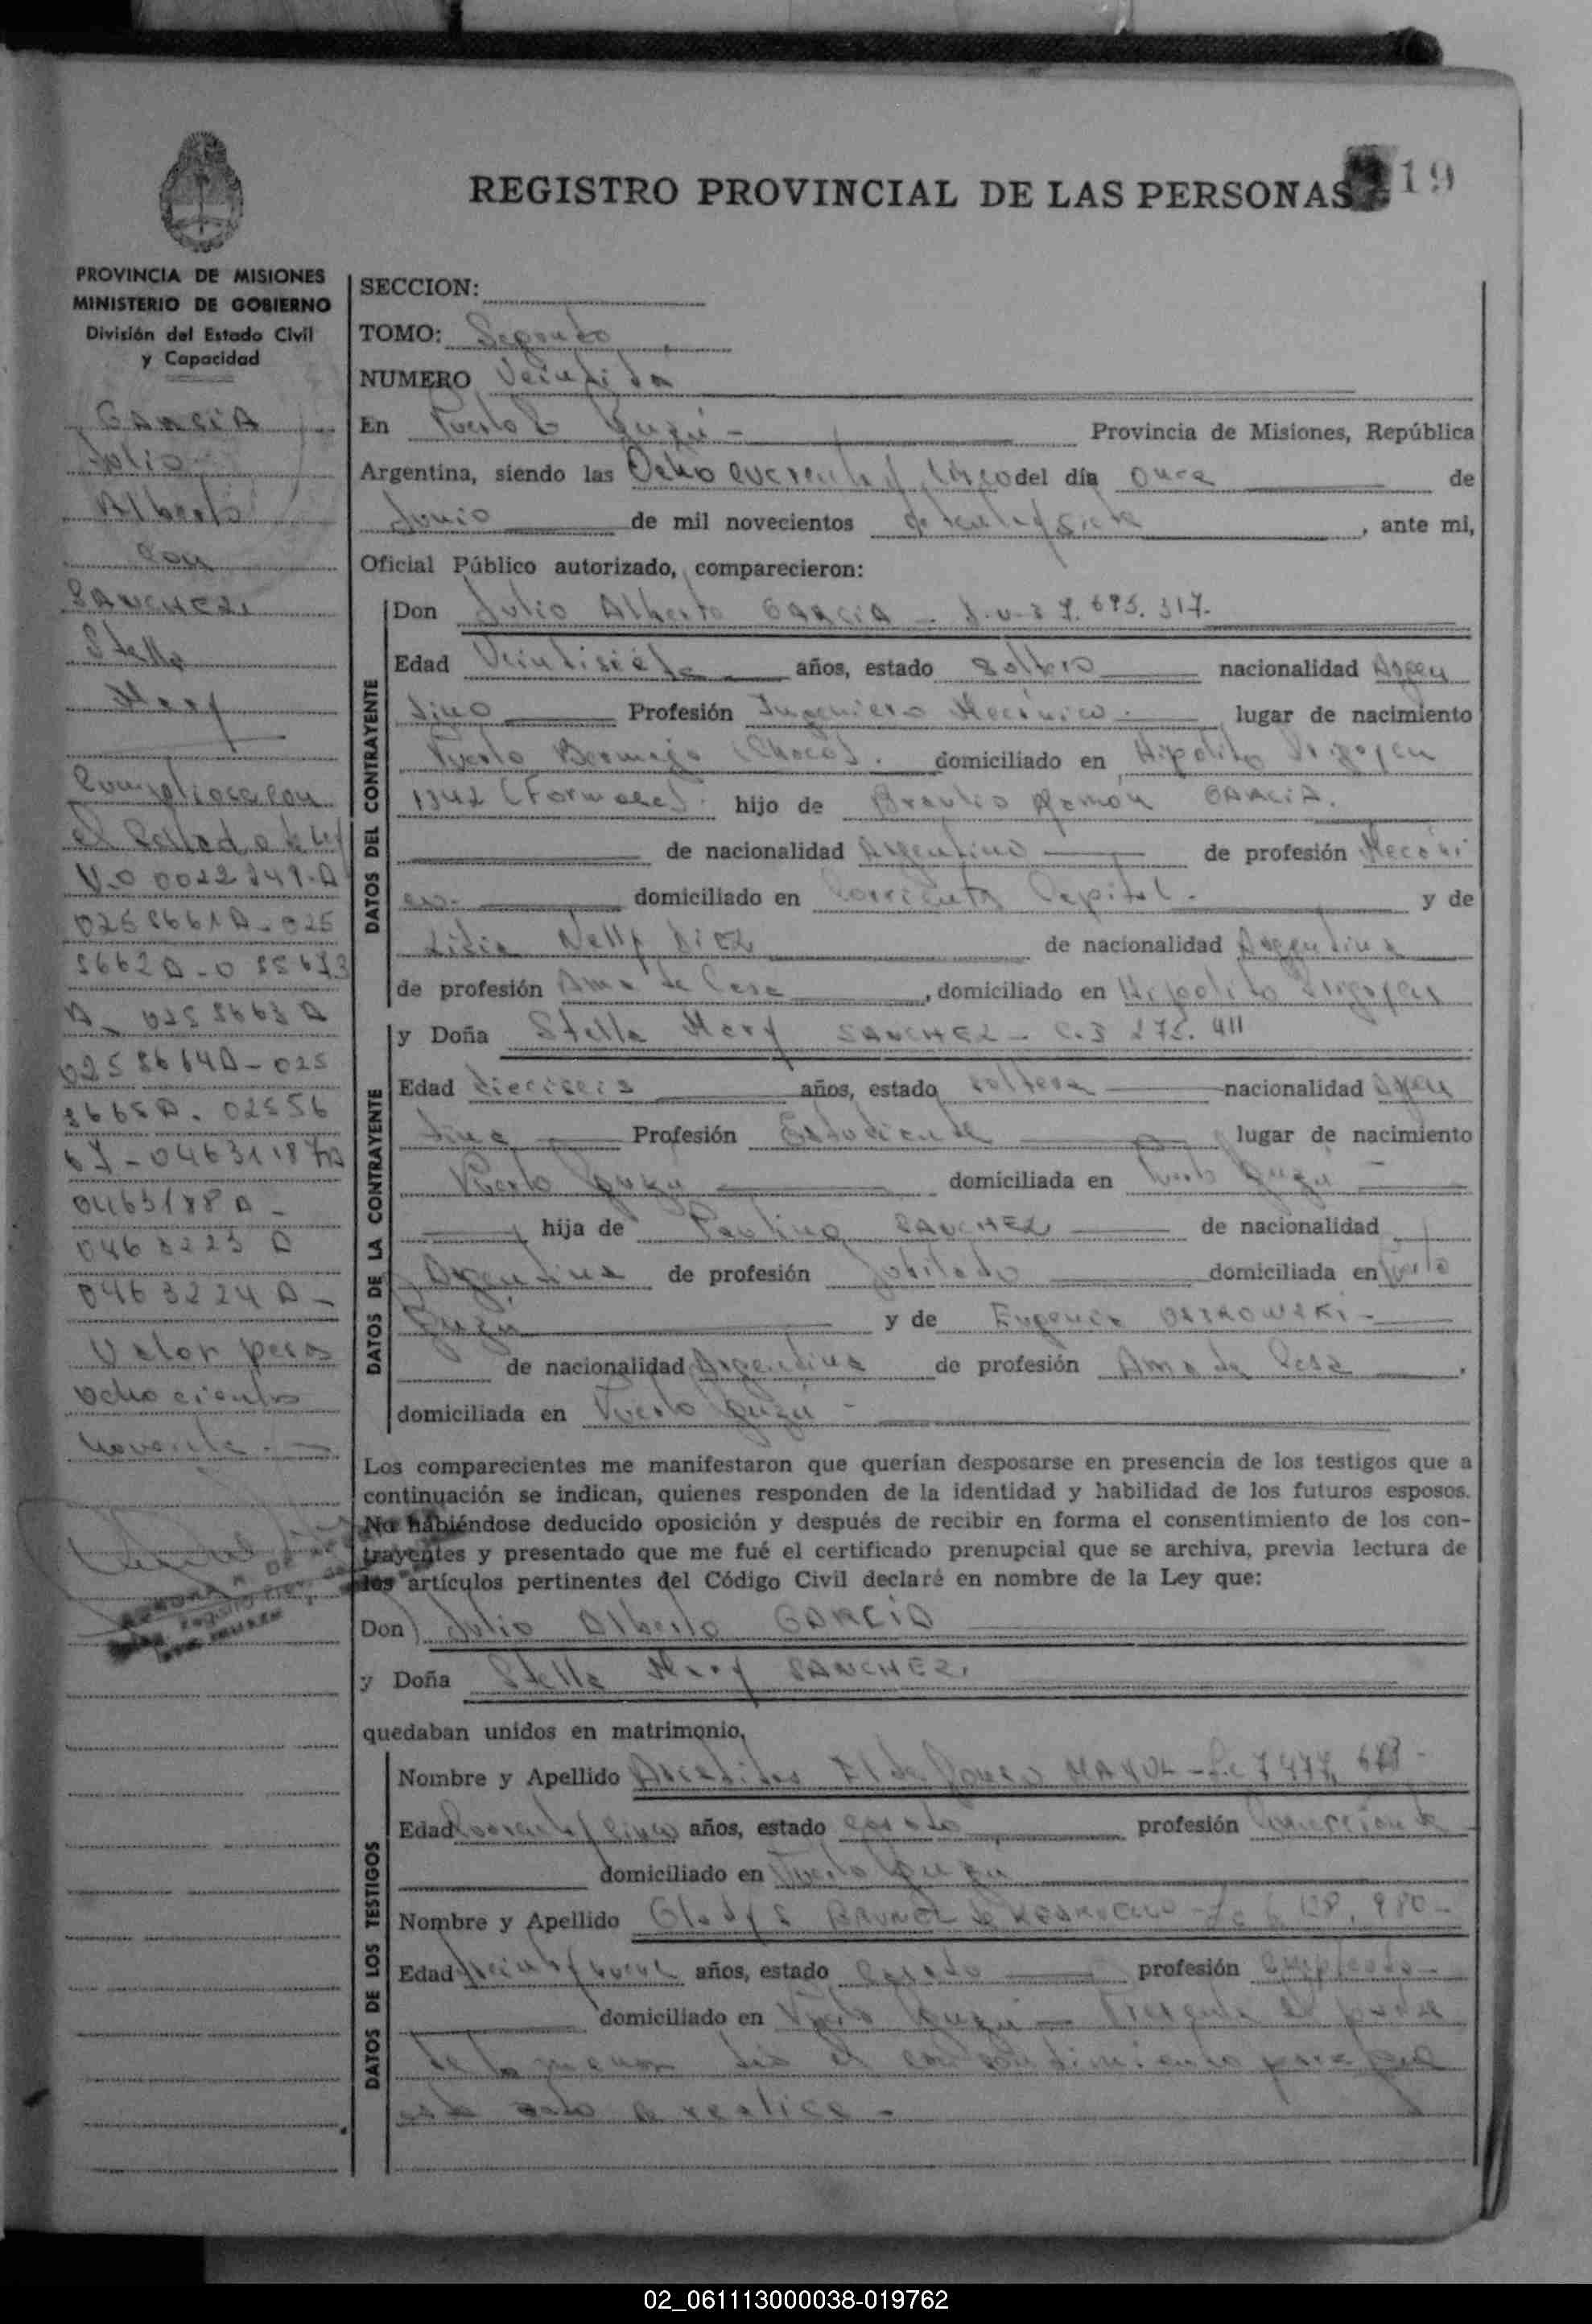 REGISTRO PROVINCIAL DE LAS PERSONAS 19
PROVINCIA DE MISIONES
MINISTERIO DE GOBIERNO
División del Estado Civil
y Capacidad
GARCIA
Julio
Alberto
con
SANCHEZ,
Stella
Mery
el Sellado de ley
0258661A - 025
A - 0258663 A
0258664A - 025
8665A - 02556
0463188 A -
0463223 A
0463224 A -
Valor pesos
ochocientos
noventa. -
SECCION:
TOMO: Segundo
NUMERO
En Puerto Yguazú - Provincia de Misiones, República
Argentina, siendo las Ocho cuarenta y cinco del día once de
Junio de mil novecientos setenta y siete, ante mi,
Oficial Público autorizado, comparecieron:
DATOS DEL CONTRAYENTE
Don Julio Alberto GARCIA - 695.317.
Edad Veintisiete años, estado soltero nacionalidad Argen
tino Profesión Ingeniero Mecánico - lugar de nacimiento
Puerto Bermejo (Chaco). domiciliado en Hipolito Irigoyen
1342 (Formosa). hijo de Braulio Ramón GARCIA.
de nacionalidad Argentino de profesión Mecáni
co. domiciliado en Corrientes Capital. y de
Lidia Nelly DIEZ de nacionalidad Argentina
de profesión Ama de Casa, domiciliado en Hipolito Irigoyen
DATOS DE LA CONTRAYENTE
y Doña Stella Mery SANCHEZ - 275.411
Edad dieciseis años, estado soltera nacionalidad Argen
tina Profesión Estudiante lugar de nacimiento
Puerto Yguazú domiciliada en Puerto Yguazú
hija de Paulino SANCHEZ de nacionalidad
Argentina de profesión Jubilado domiciliada en Puerto
Yguazú y de Eugenia OSTROWSKI -
de nacionalidad Argentina de profesión Ama de Casa.
domiciliada en Puerto Yguazú -
Los comparecientes me manifestaron que querían desposarse en presencia de los testigos que a
continuación se indican, quienes responden de la identidad y habilidad de los futuros esposos.
No habiéndose deducido oposición y después de recibir en forma el consentimiento de los con-
trayentes y presentado que me fué el certificado prenupcial que se archiva, previa lectura de
los artículos pertinentes del Código Civil declaré en nombre de la Ley que:
Don Julio Alberto GARCIA
y Doña Stella Mery SANCHEZ,
quedaban unidos en matrimonio,
DATOS DE LOS TESTIGOS
Nombre y Apellido
Edad cuarenta y cinco años, estado casado profesión Comerciante
domiciliado en Puerto Yguazú
Nombre y Apellido Gladys
Edad años, estado casada profesión empleada -
domiciliado en Puerto Yguazú - Presente el padre
de la menor dió el consentimiento para que
este acto se realice -
02_061113000038-019762